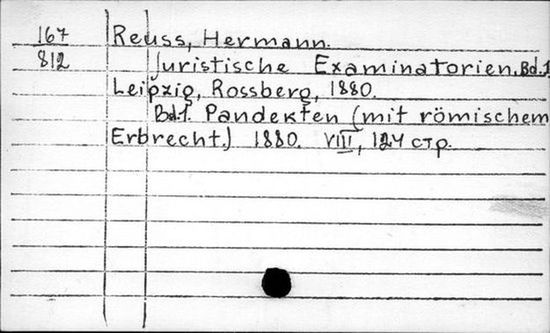 167 Reuss, Hermann.
812 Juristische Examinatorien. Bd.1
Leipzig, Rossberg, 1880.
Bd.1. Pandekten (mit römischem
Erbrecht.) 1880. VIII, 124 стр.